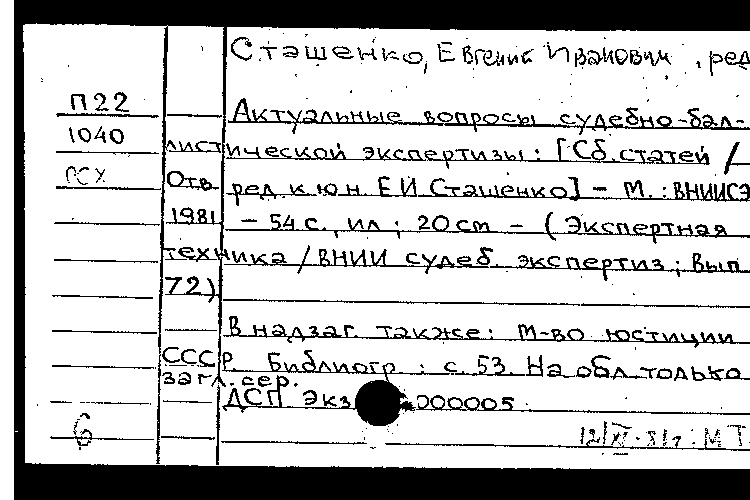 Сташенко, Евгений Иванович, ред
П22
1040
РСХ
Актуальные вопросы судебно-бал-
листической экспертизы: [Сб. статей /
Отв ред к.ю.н. Е И Сташенко] – М. : ВНИИСЭ
1981 – 54 с., ил ; 20 см – ( Экспертная
техника / ВНИИ судеб. экспертиз ; Вып
72)
В надзаг также: М-во юстиции
СССР Библиогр : с. 53. На обл только
загл. сер.
ДСП Экз 000005
6
12/XI-81г : М Т